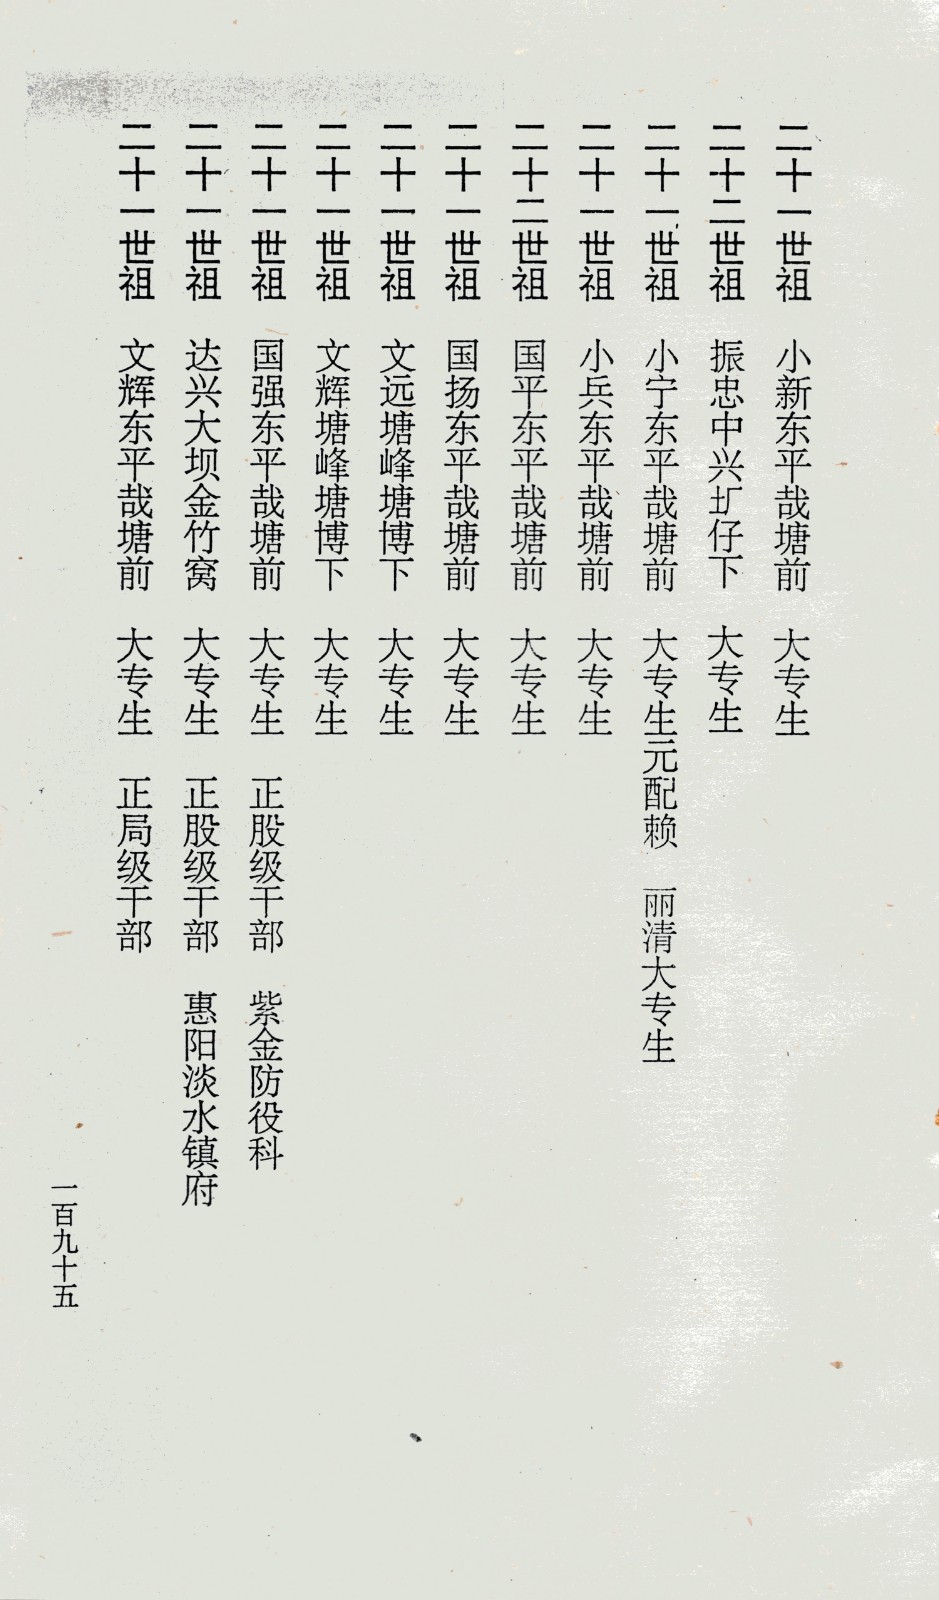 二十一世祖 小新东平哉塘前 大专生
二十二世祖 振忠中兴圹仔下 大专生
二十一世祖 小宁东平哉塘前 大专生元配赖 丽清大专生
二十一世祖 小兵东平哉塘前 大专生
二十二世祖 国平东平哉塘前 大专生
二十一世祖 国扬东平哉塘前 大专生
二十一世祖 文远塘峰塘博下 大专生
二十一世祖 文辉塘峰塘博下 大专生
二十一世祖 国强东平哉塘前 大专生 正股级干部 紫金防役科
二十一世祖 达兴大坝金竹窝 大专生 正股级干部 惠阳淡水镇府
二十一世祖 文辉东平哉塘前 大专生 正局级干部
一百九十五